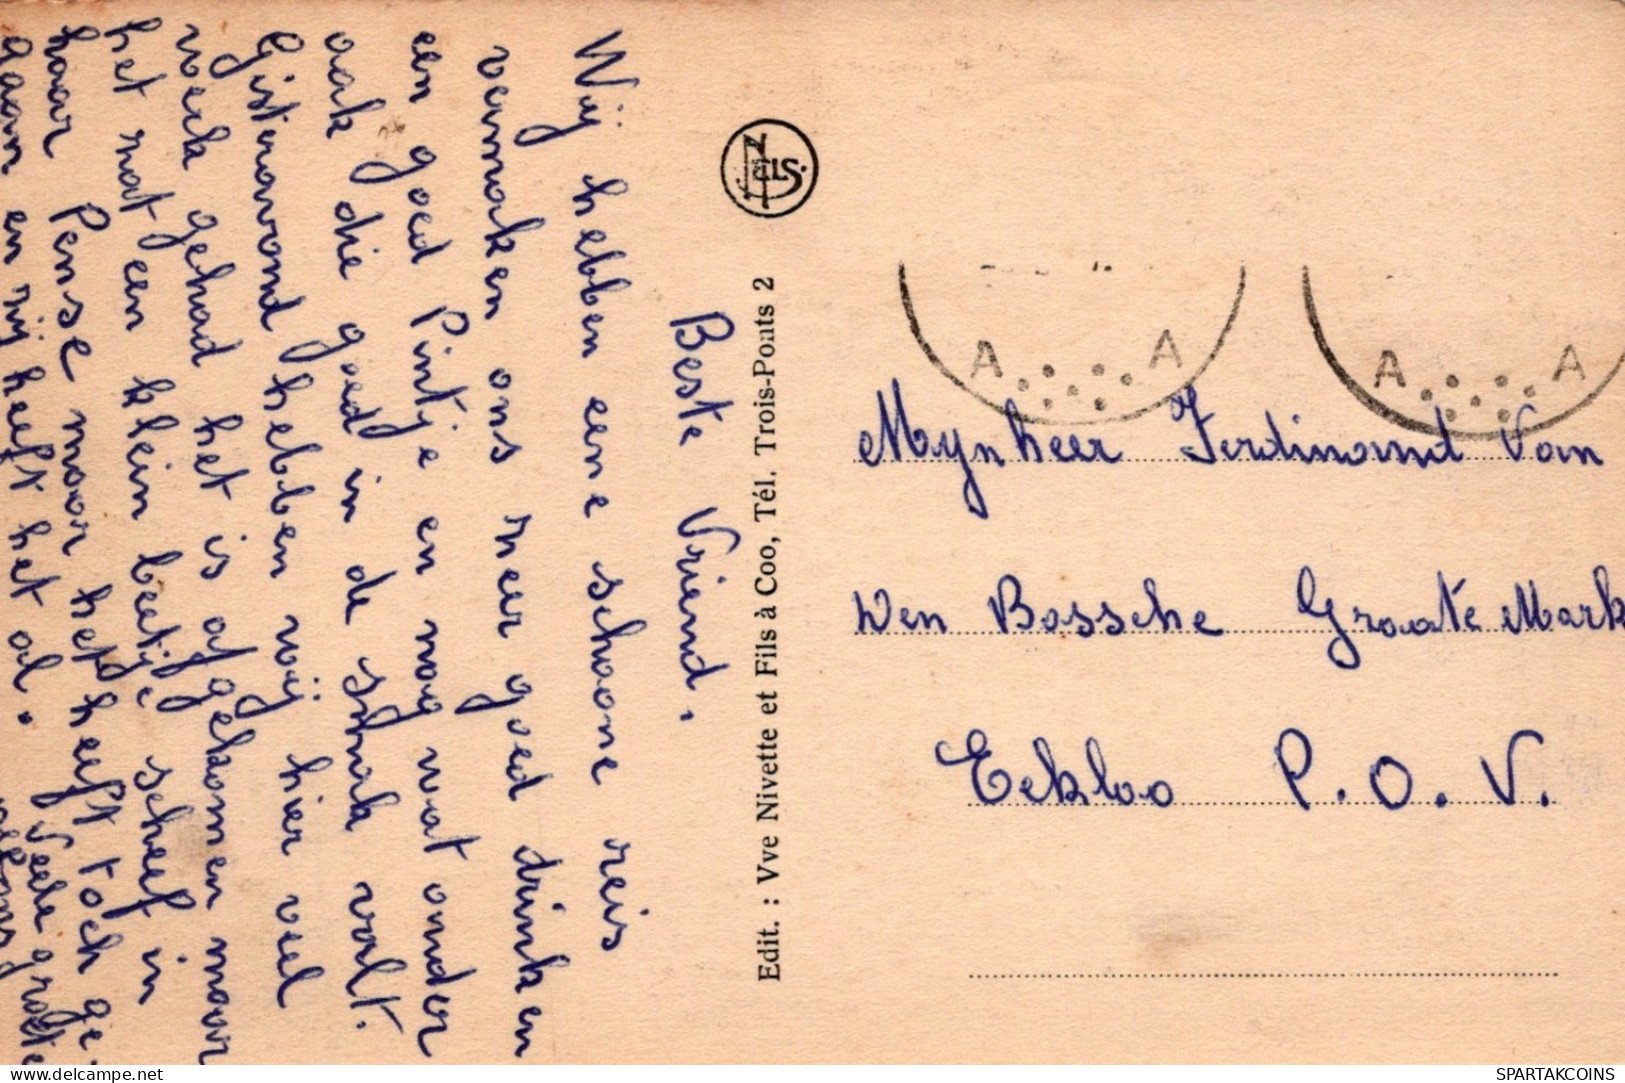 Beste Vriend.
Wij hebben eene schoone reis
vermaken ons neer goed drinken
een goed Pintje en nog wat onder
ook die goed in de smak valt.
Gisteravond hebben wij hier veel
werk gehad het is afgekomen maar
het nat een klein beetje scheef in
haar Pense maar het heeft toch ge.
gaan en nij heeft het al.
Veele groete
Edit. : Vve Nivette et Fils à Coo, Tél. Trois-Ponts 2
NELS
A A
A A
Mynheer Ferdinand Van
Den Bossche Groote Mark
Eekloo P.O.V.
delcampe.net
SPARTAKCOINS